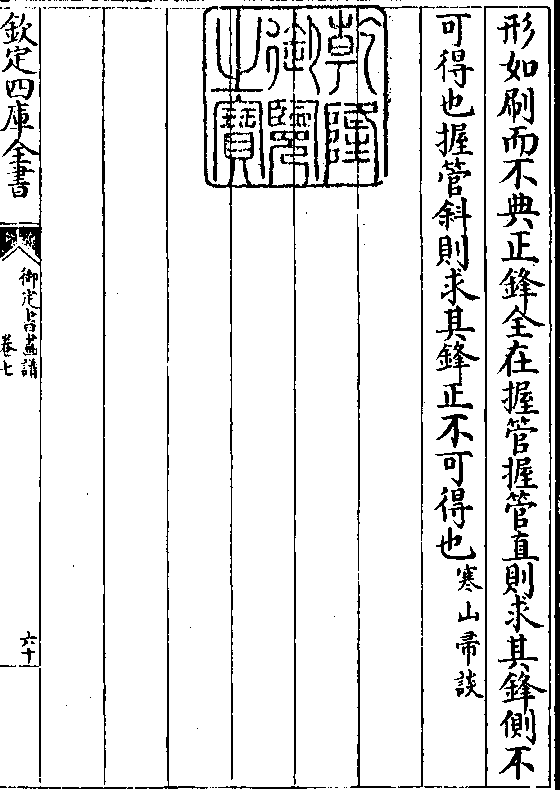 形如刷而不典正鋒全在握管握管直則求其鋒側不
可得也握管斜則求其鋒正不可得也寒山帚談
乾隆御覽之寶
欽定四庫全書
御定書畫譜
卷七
六十